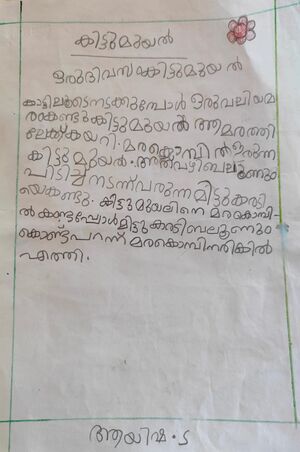 കിട്ടുമുയൽ
ഒരുദിവസം കിട്ടുമുയൽ
കാട്ടിലൂടെനടക്കുമ്പോൾ ഒരുവലിയമ
രംകണ്ടു കിട്ടുമുയൽ ആമരത്തി
ലേക്ക്കയറി. മരക്കൊമ്പിൽഇരുന്ന
കിട്ടുമുയൽ. അതുവഴിബലൂണും
പിടിച്ച്നടന്ന്വരുന്നമിട്ടുകരടി
യെകണ്ടു. കിട്ടുമുയലിനെ മരകൊമ്പി
ൽ കണ്ടപ്പോൾമിട്ടുകരടിബലൂണും
കൊണ്ട്പറന്ന് മരകൊമ്പിനരികിൽ
എത്തി.
ആയിഷ.S